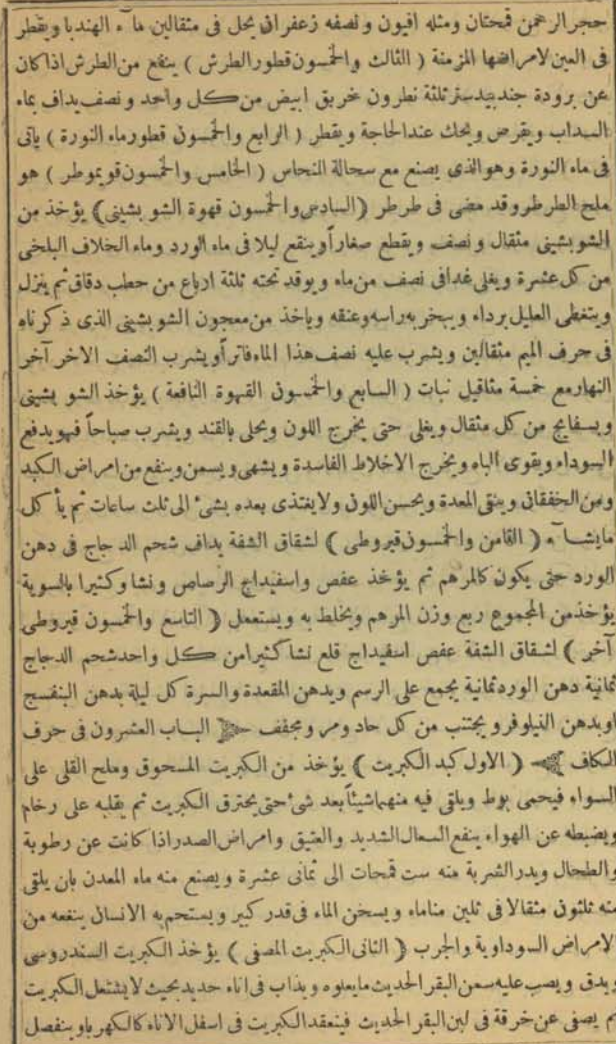 حجر الرحمن قمحتان ومثله افيون ونصفه زعفران يحل فى مثقالين ماء الهندبا ويقطر
فى العين لامراضها المزمنة ( الثالث والخمسون قطور الطرش ) ينفع من الطرش اذا كان
عن برودة جندبيدستر ثلثة نطرون خربق ابيض من كل واحد ونصف يداف بماء
السداب ويقرص ويحك عند الحاجة ويقطر ( الرابع والخمسون قطور ماء النورة ) ياتى
فى ماء النورة وهو الذى يصنع مع سحالة النحاس ( الخامس والخمسون قويموطر ) هو
ملح الطرطر وقد مضى فى طرطر ( السادس والخمسون قهوة الشوبشينى ) يؤخذ من
الشوبشينى مثقال ونصف ويقطع صغاراً وينقع ليلا فى ماء الورد وماء الخلاف البلخى
من كل عشرة ويغلى غدا فى نصف من ماء ويوقد تحته ثلثة ارباع من حطب دقاق ثم ينزل
ويتغطى العليل برداء ويبخر به راسه وعنقه وياخذ من معجون الشوبشينى الذى ذكرناه
فى حرف الميم مثقالين ويشرب عليه نصف هذا الماء فاتراً ويشرب النصف الاخر آخر
النهار مع خمسة مثاقيل نبات ( السابع والخمسون القهوة النافعة ) يؤخذ الشوبشينى
وبسفايج من كل مثقال ويغلى حتى يخرج اللون ويحلى بالقند ويشرب صباحاً فهو يدفع
السوداء ويقوى الباه ويخرج الاخلاط الفاسدة ويشهى ويسمن وينفع من امراض الكبد
ومن الخفقان وينقى المعدة ويحسن اللون ولا يغتذى بعده بشئ الى ثلث ساعات ثم يأكل
مايشاء ( الثامن والخمسون قيروطى ) لشقاق الشفة يداف شحم الدجاج فى دهن
الورد حتى يكون كالمرهم ثم يؤخذ عفص واسفيداج الرصاص ونشا وكثيرا بالسوية
يؤخذ من المجموع ربع وزن المرهم ويخلط به ويستعمل ( التاسع والخمسون قيروطى
آخر ) لشقاق الشفة عفص اسفيداج قلع نشا كثيرا من كل واحد شحم الدجاج
ثمانية دهن الورد ثمانية يجمع على الرسم ويدهن المقعدة والسرة كل ليلة بدهن البنفسج
او بدهن النيلوفر ويجتنب من كل حاد ومر ومجفف الباب العشرون فى حرف
الكاف ( الاول كبد الكبريت ) يؤخذ من الكبريت المسحوق وملح القلى على
السواء فيحمى بوط ويلقى فيه منهما شيئاً بعد شئ حتى يحترق الكبريت ثم يقلبه على رخام
ويضبطه عن الهواء ينفع السعال الشديد والعتيق وامراض الصدر اذا كانت عن رطوبة
والطحال ويدر الشربة منه ست قمحات الى ثمانى عشرة ويصنع منه ماء المعدن بان يلقى
منه ثلثون مثقالا فى ثلثين منا ماء ويسخن الماء فى قدر كبير ويستحم به الانسان ينفعه من
الامراض السوداوية والجرب ( الثانى الكبريت المصفى ) يؤخذ الكبريت السندروسى
ويدق ويصب عليه سمن البقر الحديث ما يعلوه ويذاب فى اناء حديد بحيث لا يشتعل الكبريت
ثم يصفى عن خرقة فى لبن البقر الحديث فينعقد الكبريت فى اسفل الاناء كالكهربا وينفصل